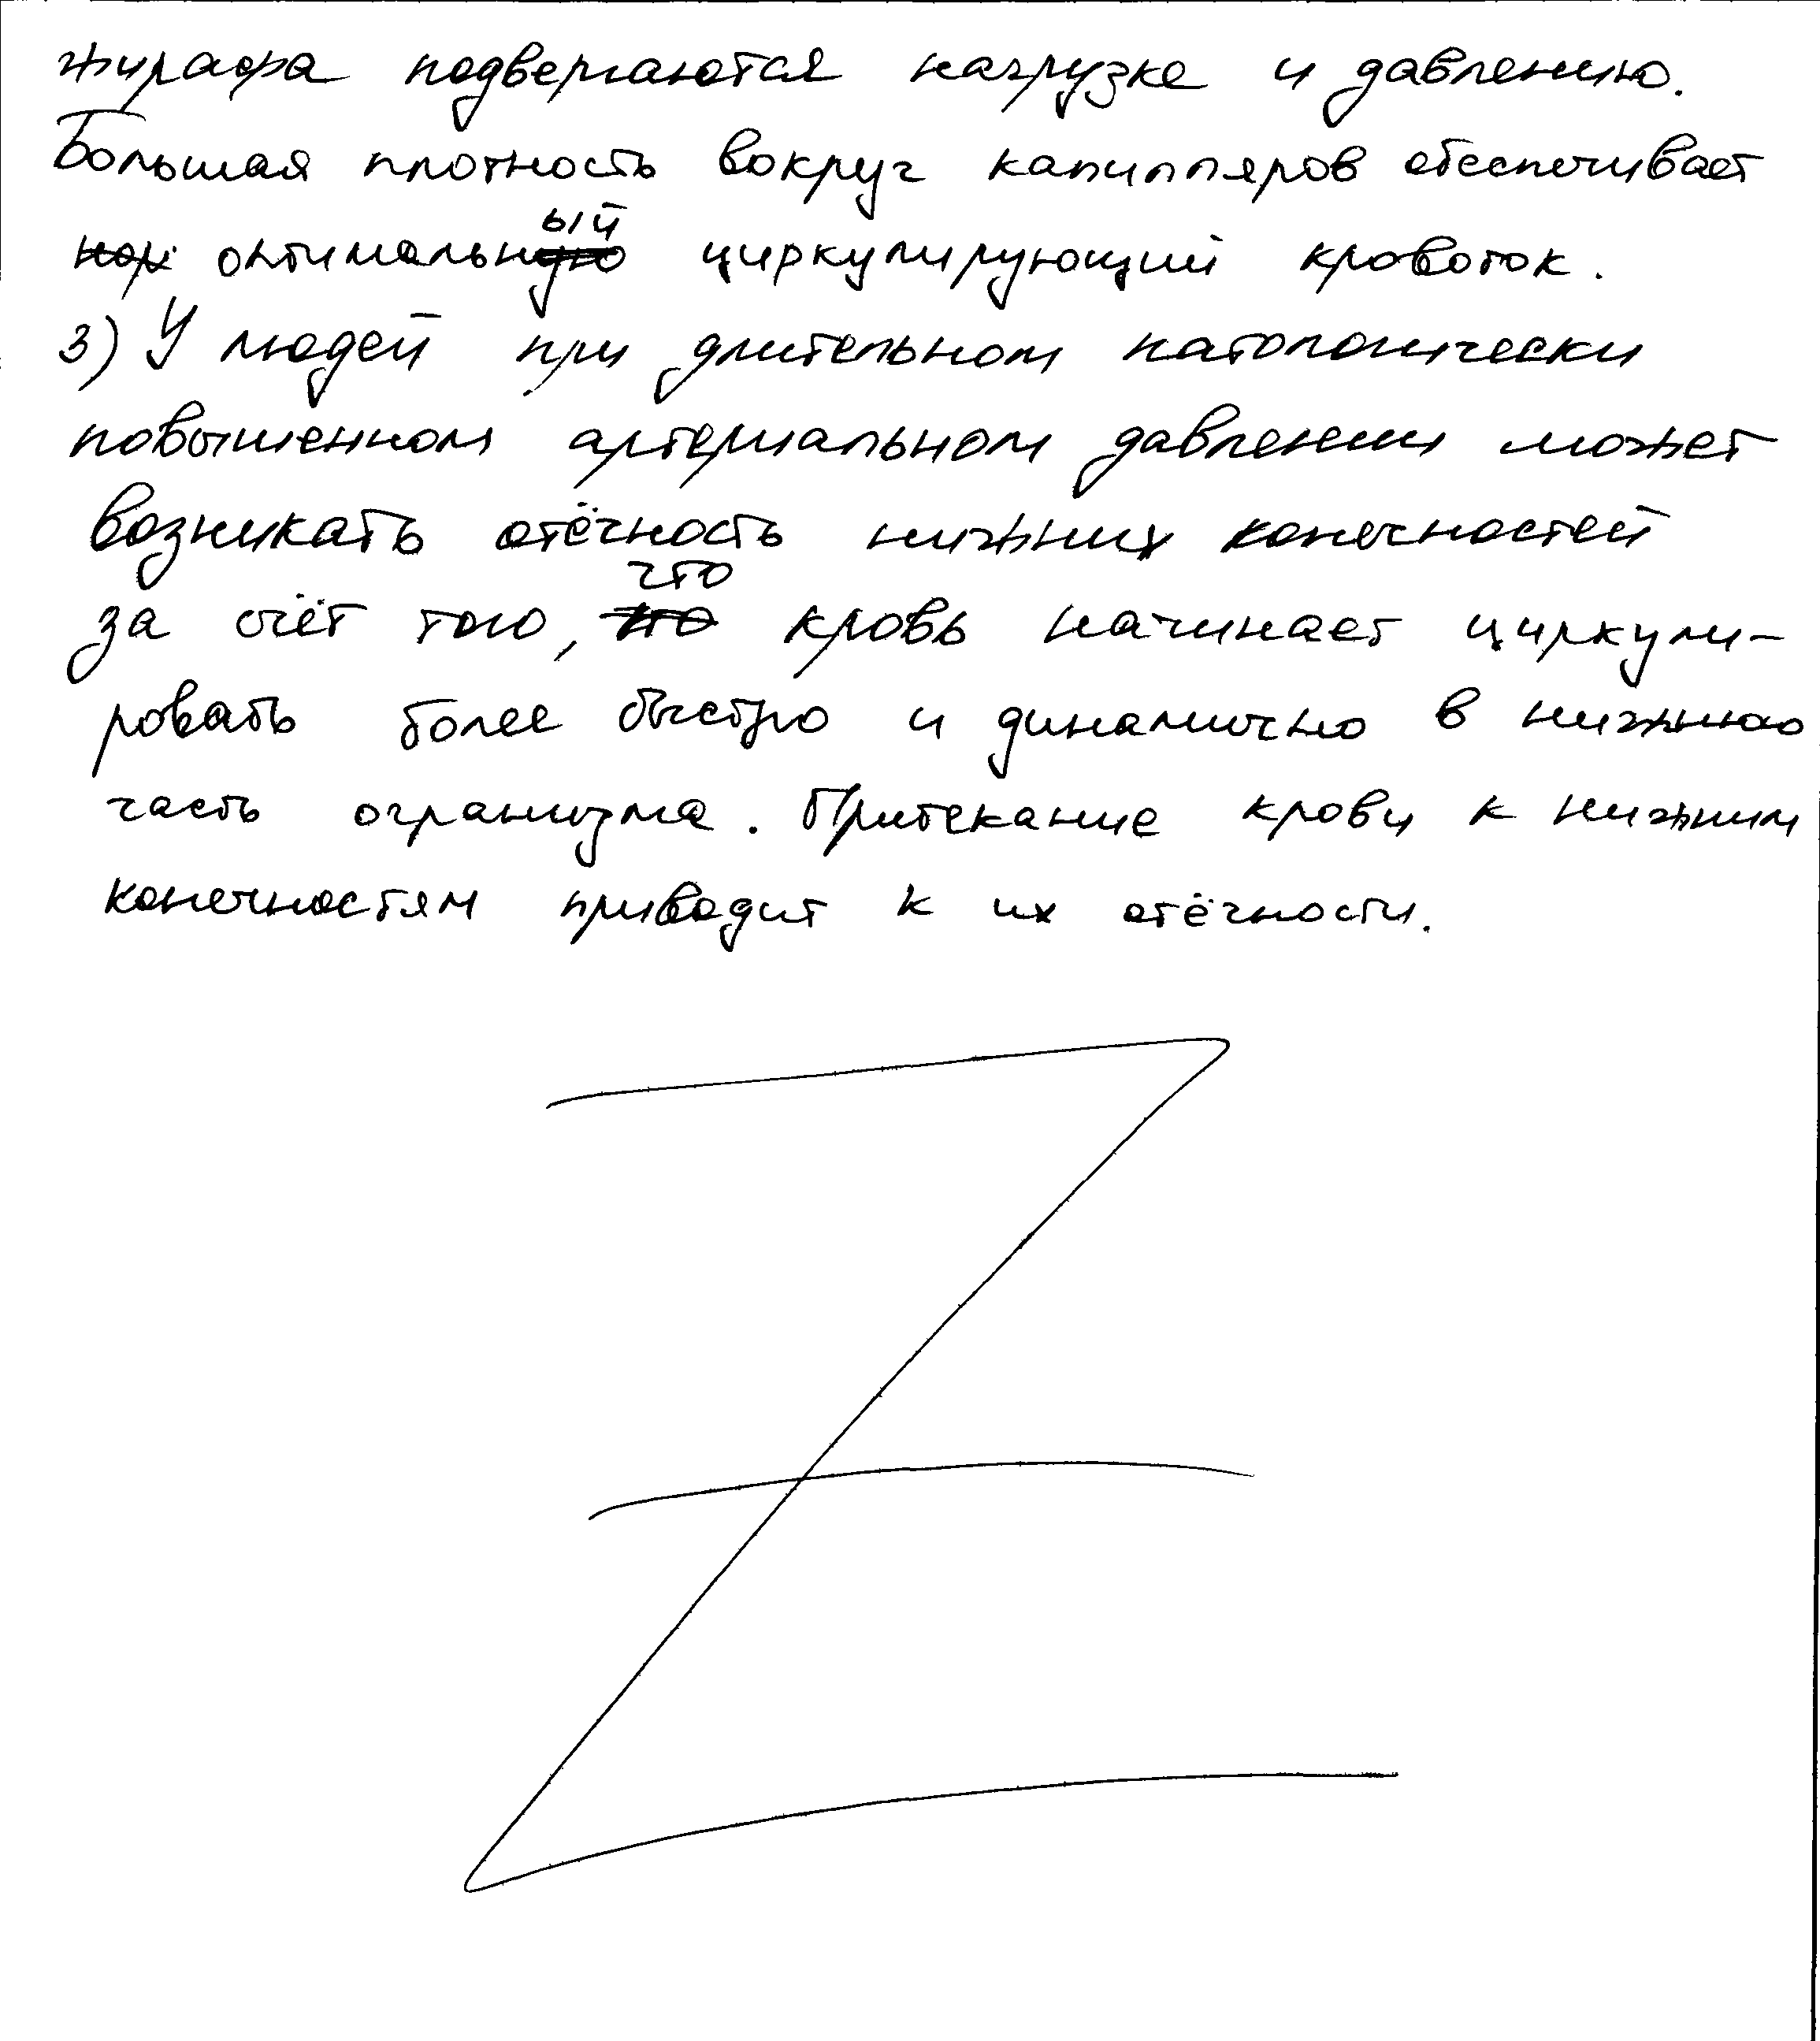 жирафа подвергаются нагрузке и давлению.
Большая плотность вокруг капилляров обеспечивает
оптимальный циркулирующий кровоток.
3) У людей при длительном патологически
повышенном артериальном давлении может
возникать отёчность нижних конечностей
за счёт того, что кровь начинает циркули-
ровать более быстро и динамично в нижнюю
часть огранизма. Притекание крови к нижним
конечностям приводит к их отёчности.